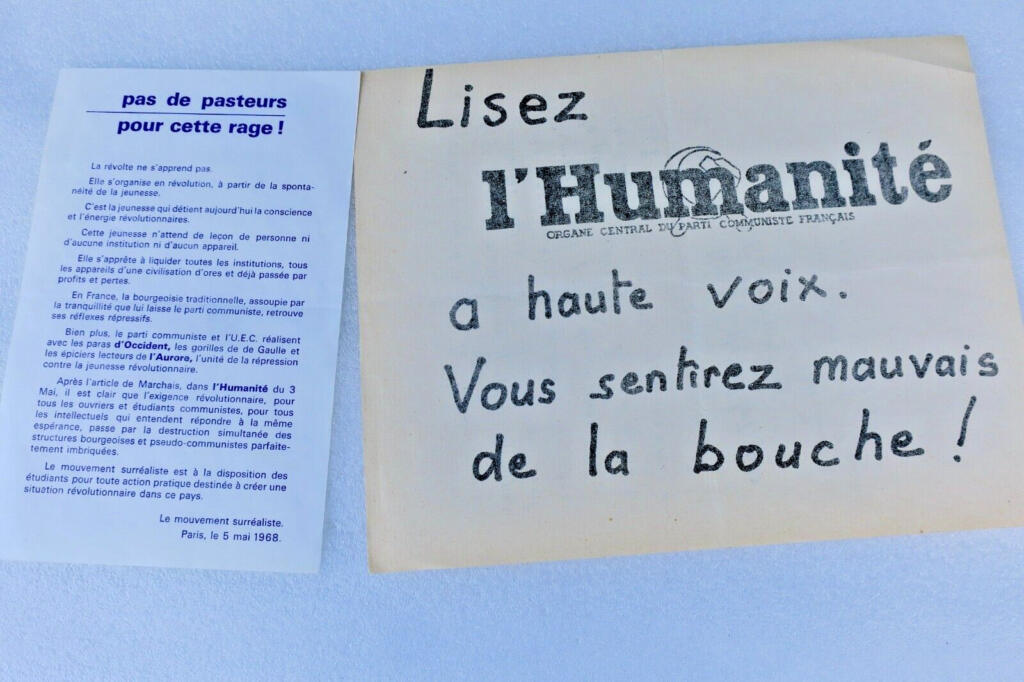 pas de pasteurs
pour cette rage !
La révolte ne s'apprend pas.
Elle s'organise en révolution, à partir de la sponta-
néité de la jeunesse.
C'est la jeunesse qui détient aujourd'hui la conscience
et l'énergie révolutionnaires.
Cette jeunesse n'attend de leçon de personne ni
d'aucune institution ni d'aucun appareil.
Elle s'apprête à liquider toutes les institutions, tous
les appareils d'une civilisation d'ores et déjà passée par
profits et pertes.
En France, la bourgeoisie traditionnelle, assoupie par
la tranquillité que lui laisse le parti communiste, retrouve
ses réflexes répressifs.
Bien plus, le parti communiste et l'U.E.C. réalisent
avec les paras d'Occident, les gorilles de de Gaulle et
les épiciers lecteurs de l'Aurore, l'unité de la répression
contre la jeunesse révolutionnaire.
Après l'article de Marchais, dans l'Humanité du 3
Mai, il est clair que l'exigence révolutionnaire, pour
tous les ouvriers et étudiants communistes, pour tous
les intellectuels qui entendent répondre à la même
espérance, passe par la destruction simultanée des
structures bourgeoises et pseudo-communistes parfaite-
tement imbriquées.
Le mouvement surréaliste est à la disposition des
étudiants pour toute action pratique destinée à créer une
situation révolutionnaire dans ce pays.
Le mouvement surréaliste.
Paris, le 5 mai 1968.
Lisez
l'Humanité
ORGANE CENTRAL DU PARTI COMMUNISTE FRANÇAIS
a haute voix.
Vous sentirez mauvais
de la bouche !